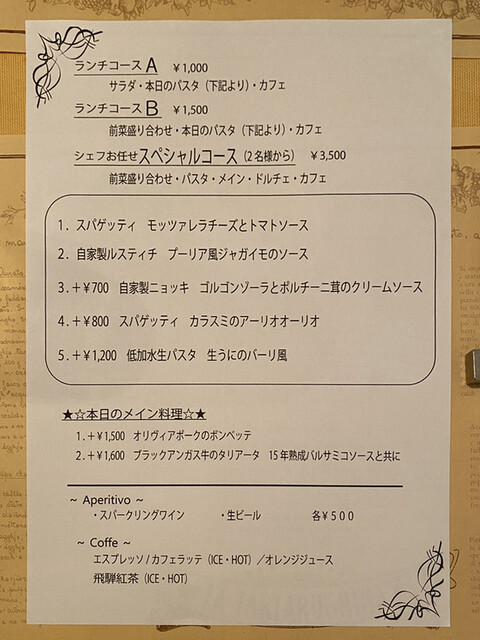 ランチコース A ￥1,000
サラダ・本日のパスタ（下記より）・カフェ
ランチコース B ￥1,500
前菜盛り合わせ・本日のパスタ（下記より）・カフェ
シェフお任せスペシャルコース（2名様から） ￥3,500
前菜盛り合わせ・パスタ・メイン・ドルチェ・カフェ
1. スパゲッティ モッツァレラチーズとトマトソース
2. 自家製ルスティチ プーリア風ジャガイモのソース
3.＋¥700 自家製ニョッキ ゴルゴンゾーラとポルチーニ茸のクリームソース
4.＋¥800 スパゲッティ カラスミのアーリオオーリオ
5.＋¥1,200 低加水生パスタ 生うにのバーリ風
★☆本日のメイン料理☆★
1.＋¥1,500 オリヴィアポークのボンベッテ
2.＋¥1,600 ブラックアンガス牛のタリアータ 15年熟成バルサミコソースと共に
~ Aperitivo ~
・スパークリングワイン ・生ビール 各￥５００
~ Coffe ~
エスプレッソ / カフェラッテ（ICE・HOT）／オレンジジュース
飛騨紅茶（ICE・HOT）